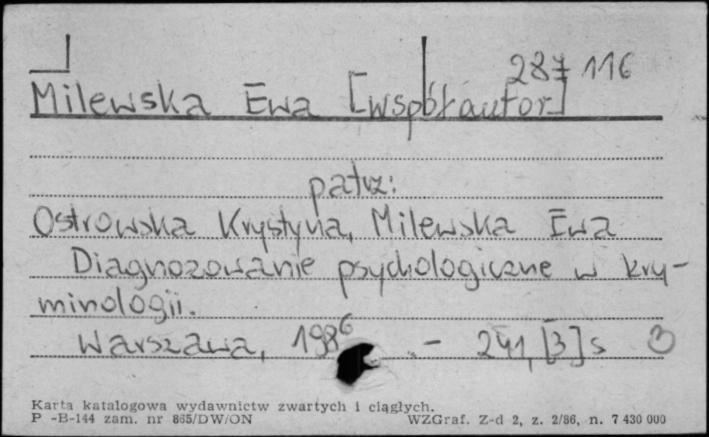 287 116
Milewska Ewa [współautor]
patrz:
Ostrowska Krystyna, Milewska Ewa
Diagnozowanie psychologiczne w kry-
minologii.
Warszawa, 1986 . - 241, [3] s
Karta katalogowa wydawnictw zwartych i ciągłych.
P -B-144 zam. nr 865/DW/ON WZGraf. Z-d 2, z. 2/86, n. 7 430 000